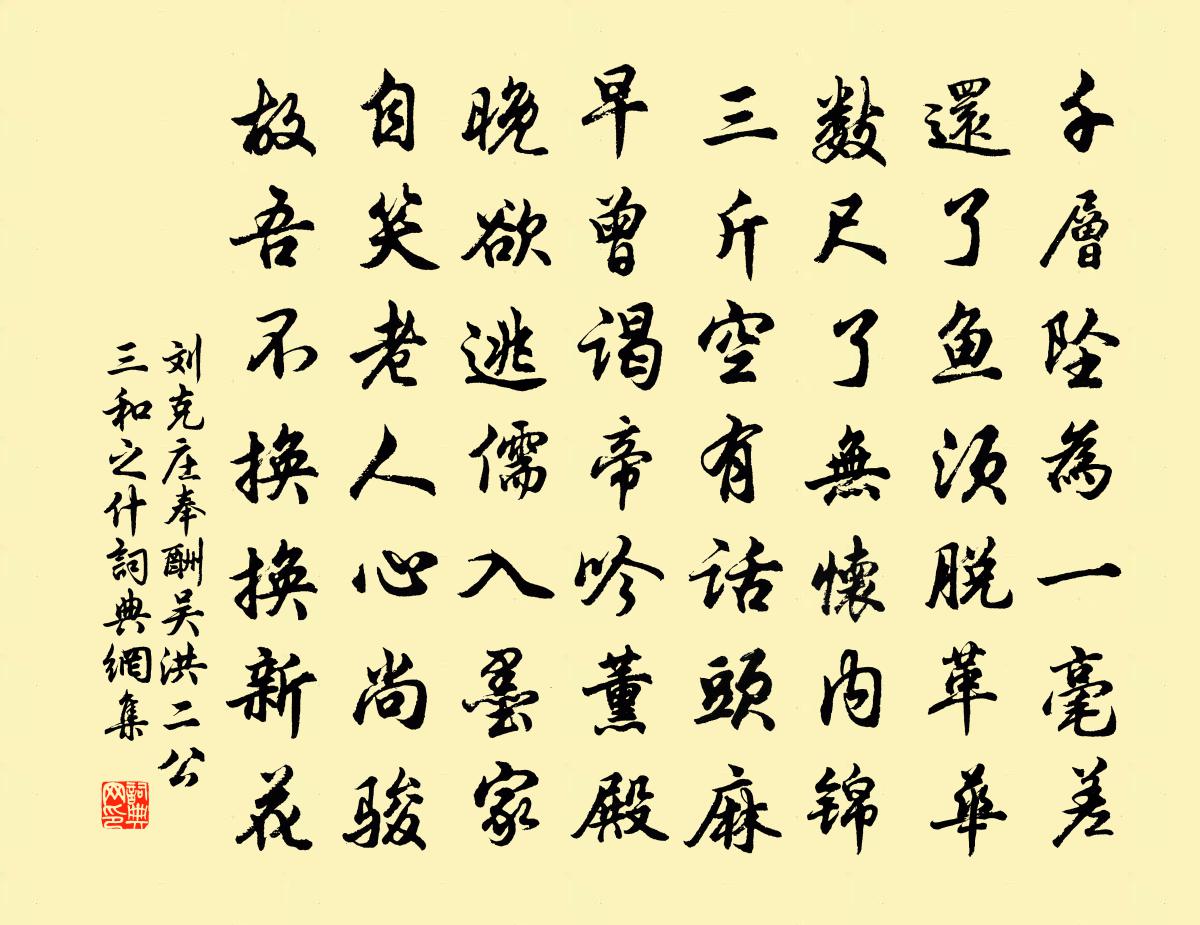 千層墜為一毫差
還了魚須脫革華
數尺了無懷內錦
三斤空有話頭麻
早曾謁帝吟薰殿
晚欲逃儒入墨家
自笑老人心尚駿
故吾不換換新花
刘克庄奉酬吴洪二公
三和之什詞典網集
詞典网印